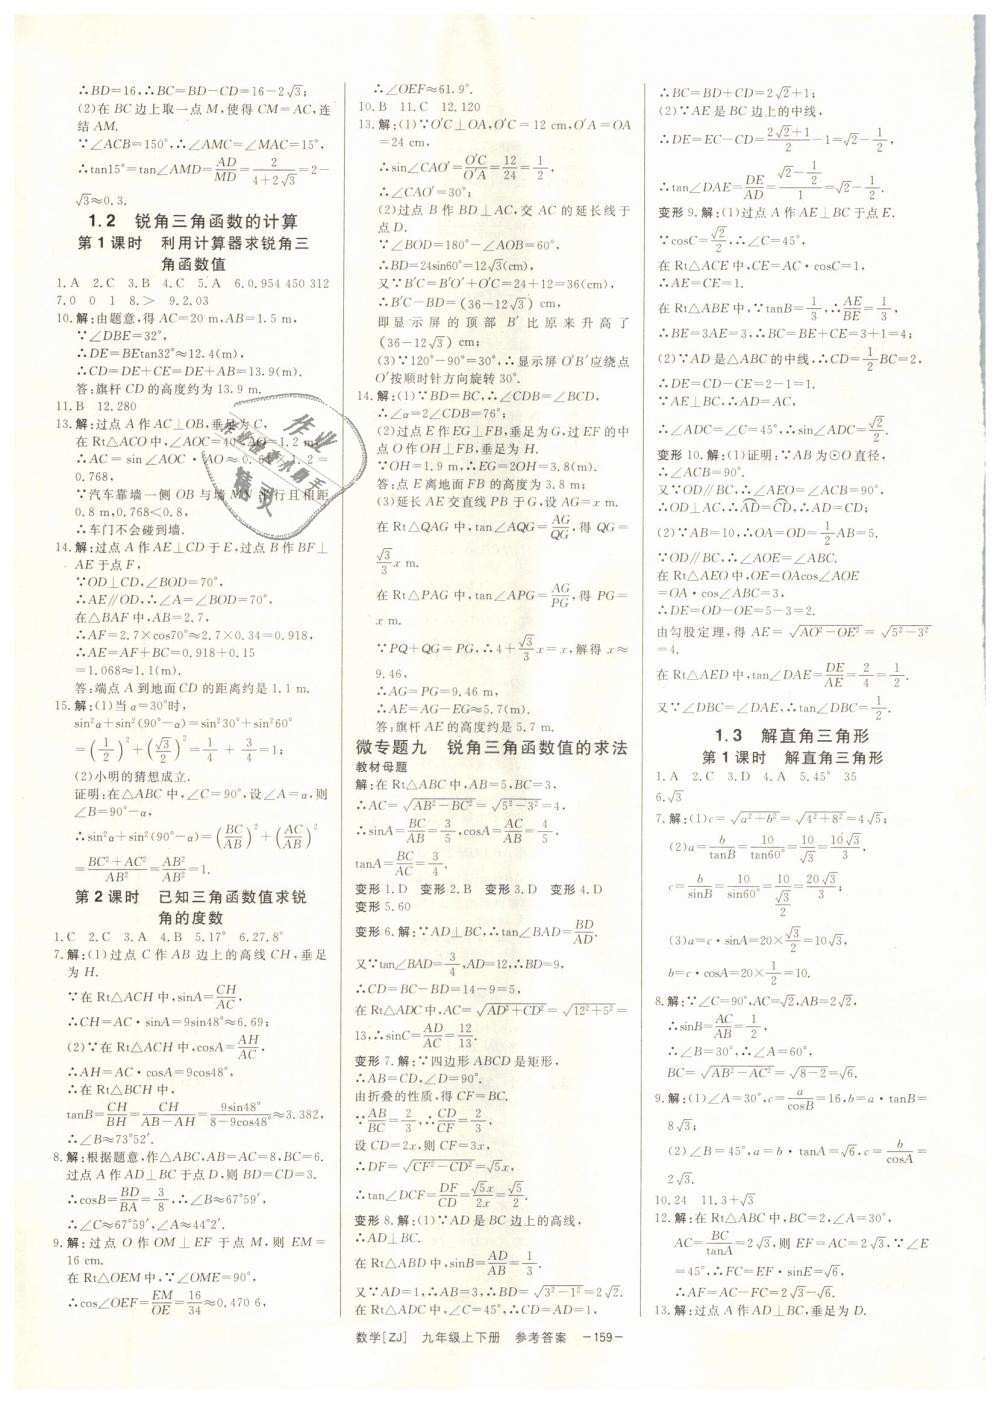 ∴BD=16,∴BC=BD-CD=16-2√3;
(2)在BC边上取一点M,使得CM=AC,连
结AM.
∵∠ACB=150°,∴∠AMC=∠MAC=15°,
∴tan15°=tan∠AMD=AD/MD=2/(4+2√3)=2-
√3≈0.3.
1.2 锐角三角函数的计算
第1课时 利用计算器求锐角三
角函数值
1.A 2.C 3.B 4.C 5.A 6.0.954 450 312
7.0 0 1 8.> 9.2.03
10.解:由题意,得AC=20 m,AB=1.5 m,
∵∠DBE=32°,
∴DE=BEtan32°≈12.4(m),
∴CD=DE+CE=DE+AB=13.9(m).
答:旗杆CD的高度约为13.9 m.
11.B 12.280
13.解:过点A作AC⊥OB,垂足为C,
在Rt△ACO中,∠AOC=40°,AO=1.2 m,
∴AC=sin∠AOC·AO≈0.64×1.2=
0.768,
∵汽车靠墙一侧OB与墙MN平行且相距
0.8 m,0.768<0.8,
∴车门不会碰到墙.
14.解:过点A作AE⊥CD于E,过点B作BF⊥
AE于点F,
∵OD⊥CD,∠BOD=70°,
∴AE∥OD,∴∠A=∠BOD=70°,
在△BAF中,AB=2.7,
∴AF=2.7×cos70°≈2.7×0.34=0.918,
∴AE=AF+BC=0.918+0.15
=1.068≈1.1(m).
答:端点A到地面CD的距离约是1.1 m.
15.解:(1)当α=30°时,
sin²α+sin²(90°-α)=sin²30°+sin²60°
=(1/2)²+(√3/2)²=1/4+3/4=1;
(2)小明的猜想成立.
证明:在△ABC中,∠C=90°,设∠A=α,则
∠B=90°-α,
∴sin²α+sin²(90°-α)=(BC/AB)²+(AC/AB)²
=(BC²+AC²)/AB²=AB²/AB²=1.
第2课时 已知三角函数值求锐
角的度数
1.C 2.C 3.A 4.B 5.17° 6.27.8°
7.解:(1)过点C作AB边上的高线CH,垂足
为H.
∵在Rt△ACH中,sinA=CH/AC,
∴CH=AC·sinA=9sin48°≈6.69;
(2)∵在Rt△ACH中,cosA=AH/AC,
∴AH=AC·cosA=9cos48°,
∴在Rt△BCH中,
tanB=CH/BH=CH/(AB-AH)=9sin48°/(8-9cos48°)≈3.382,
∴∠B≈73°52′.
8.解:根据题意,作△ABC,AB=AC=8,BC=6.
过点A作AD⊥BC于点D,则BD=CD=3.
∴cosB=BD/BA=3/8,∴∠B≈67°59′,
∴∠C≈67°59′,∠A≈44°2′.
9.解:过点O作OM⊥EF于点M,则EM=
16 cm.
在Rt△OEM中,∵∠OME=90°,
∴cos∠OEF=EM/OE=16/34≈0.470 6,
∴∠OEF≈61.9°.
10.B 11.C 12.120
13.解:(1)∵O′C⊥OA,O′C=12 cm,O′A=OA
=24 cm,
∴sin∠CAO′=O′C/O′A=12/24=1/2,
∴∠CAO′=30°;
(2)过点B作BD⊥AC,交AC的延长线于
点D.
∵∠BOD=180°-∠AOB=60°,
∴BD=24sin60°=12√3(cm),
又∵B′C=B′O′+O′C=24+12=36(cm),
∴B′C-BD=(36-12√3) cm,
即显示屏的顶部B′比原来升高了
(36-12√3) cm;
(3)∵120°-90°=30°,∴显示屏O′B′应绕点
O′按顺时针方向旋转30°.
14.解:(1)∵BD=BC,∴∠CDB=∠BCD,
∴∠α=2∠CDB=76°;
(2)过点E作EG⊥FB,垂足为G,过EF的中
点O作OH⊥FB,垂足为H.
∵OH=1.9 m,∴EG=2OH=3.8(m).
答:点E离地面FB的高度为3.8 m;
(3)延长AE交直线PB于G,设AG=x m.
在Rt△QAG中,tan∠AQG=AG/QG,得QG=
√3/3 x m.
在Rt△PAG中,tan∠APG=AG/PG,得PG=
x m.
∵PQ+QG=PG,∴4+√3/3 x=x,解得x≈
9.46,
∴AG=PG=9.46 m,
∴AE=AG-EG≈5.7(m).
答:旗杆AE的高度约是5.7 m.
微专题九 锐角三角函数值的求法
教材母题
解:在Rt△ABC中,AB=5,BC=3,
∴AC=√(AB²-BC²)=√(5²-3²)=4,
∴sinA=BC/AB=3/5,cosA=AC/AB=4/5,
tanA=BC/AC=3/4.
变形1.D 变形2.B 变形3.C 变形4.D
变形5.60
变形6.解:∵AD⊥BC,∴tan∠BAD=BD/AD.
又∵tan∠BAD=3/4,AD=12,∴BD=9,
∴CD=BC-BD=14-9=5,
在Rt△ADC中,AC=√(AD²+CD²)=√(12²+5²)=
13,∴sinC=AD/AC=12/13.
变形7.解:∵四边形ABCD是矩形,
∴AB=CD,∠D=90°.
由折叠的性质,得CF=BC.
∵AB/BC=2/3,∴CD/CF=2/3,
设CD=2x,则CF=3x,
∴DF=√(CF²-CD²)=√5x,
∴tan∠DCF=DF/CD=√5x/2x=√5/2.
变形8.解:(1)∵AD是BC边上的高线,
∴AD⊥BC.
在Rt△ABD中,sinB=AD/AB=1/3.
又∵AD=1,∴AB=3,∴BD=√(3²-1²)=2√2.
在Rt△ADC中,∠C=45°,∴CD=AD=1,
∴BC=BD+CD=2√2+1;
(2)∵AE是BC边上的中线,
∴DE=EC-CD=(2√2+1)/2-1=√2-1/2,
∴tan∠DAE=DE/AD=(√2-1/2)/1=√2-1/2.
变形9.解:(1)过点A作AE⊥BC于点E.
∵cosC=√2/2,∴∠C=45°,
在Rt△ACE中,CE=AC·cosC=1,
∴AE=CE=1.
在Rt△ABE中,∵tanB=1/3,∴AE/BE=1/3,
∴BE=3AE=3,∴BC=BE+CE=3+1=4;
(2)∵AD是△ABC的中线,∴CD=1/2BC=2,
∴DE=CD-CE=2-1=1.
∵AE⊥BC,∴AD=AC,
∴∠ADC=∠C=45°,∴sin∠ADC=√2/2.
变形10.解:(1)证明:∵AB为⊙O直径,
∴∠ACB=90°.
又∵OD∥BC,∴∠AEO=∠ACB=90°,
∴OD⊥AC,∴AD⌒=CD⌒,∴AD=CD;
(2)∵AB=10,∴OA=OD=1/2AB=5.
∵OD∥BC,∴∠AOE=∠ABC.
在Rt△AEO中,OE=OAcos∠AOE
=OA·cos∠ABC=3,
∴DE=OD-OE=5-3=2.
由勾股定理,得AE=√(AO²-OE²)=√(5²-3²)
=4.
在Rt△AED中,tan∠DAE=DE/AE=2/4=1/2.
又∵∠DBC=∠DAE,∴tan∠DBC=1/2.
1.3 解直角三角形
第1课时 解直角三角形
1.A 2.C 3.D 4.A 5.45° 35
6.√3
7.解:(1)c=√(a²+b²)=√(4²+8²)=4√5;
(2)a=b/tanB=10/tan60°=10/√3=10√3/3,
c=b/sinB=10/sin60°=10/(√3/2)=20√3/3;
(3)a=c·sinA=20×√3/2=10√3,
b=c·cosA=20×1/2=10.
8.解:∵∠C=90°,AC=√2,AB=2√2,
∴sinB=AC/AB=1/2,
∴∠B=30°,∴∠A=60°,
BC=√(AB²-AC²)=√(8-2)=√6.
9.解:(1)∠A=30°,c=a/cosB=16,b=a·tanB=
8√3;
(2)∠B=45°,a=b·tanA=√6,c=b/cosA=
2√3.
10.24 11.3+√3
12.解:在Rt△ABC中,BC=2,∠A=30°,
AC=BC/tanA=2√3,则EF=AC=2√3,∵∠E
=45°,∴FC=EF·sinE=√6,
∴AF=AC-FC=2√3-√6.
13.解:过点A作AD⊥BC,垂足为D.
作业
作业检查小助手
精灵
数学[ZJ] 九年级上下册 参考答案 -159-